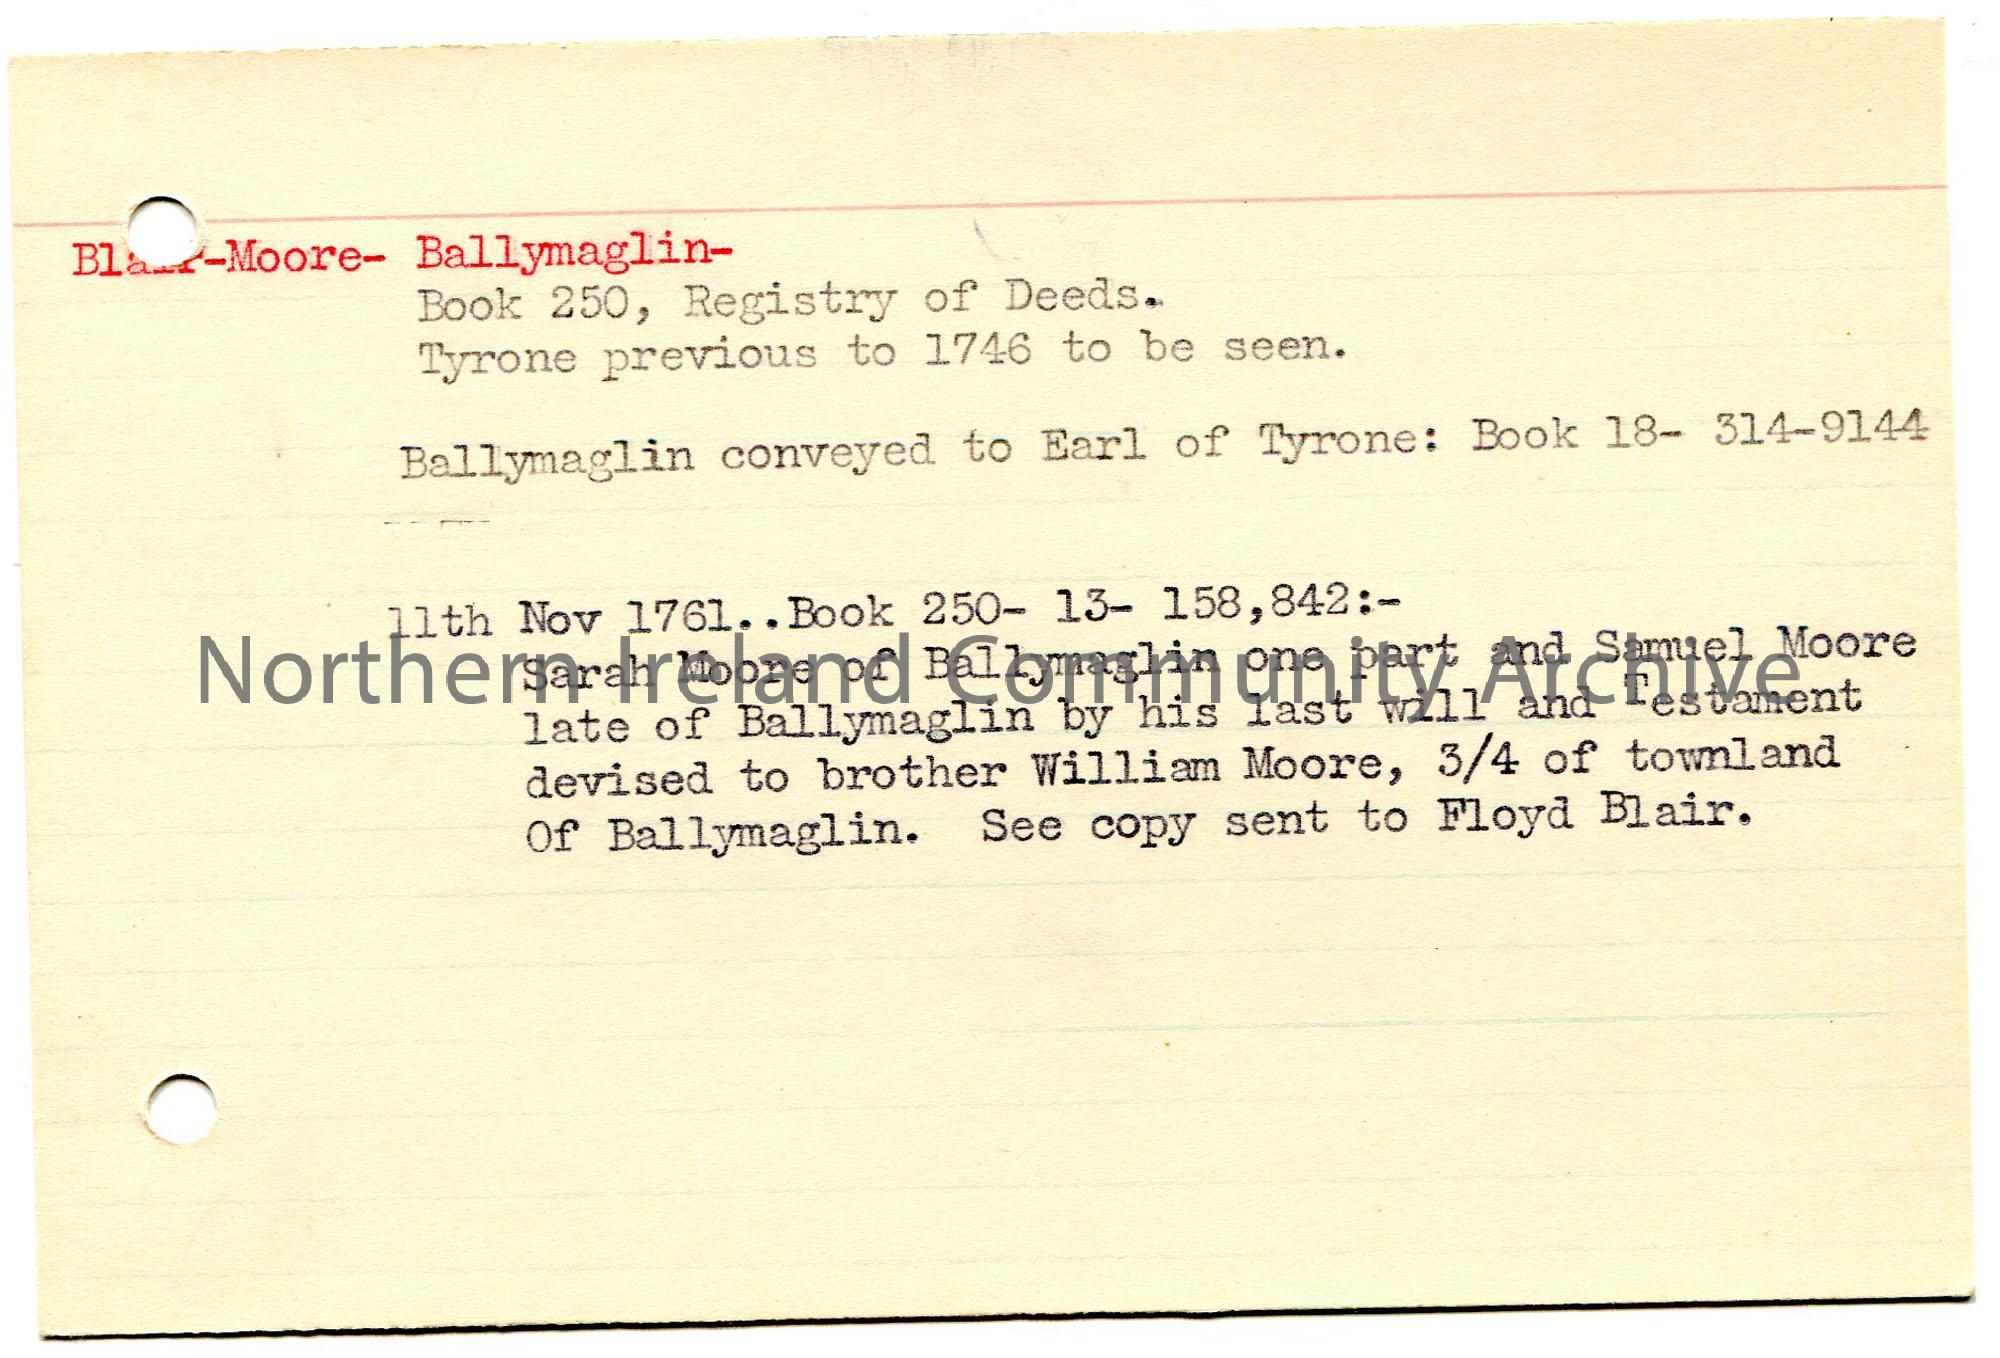 Blair-Moore- Ballymaglin-
Book 250, Registry of Deeds.
Tyrone previous to 1746 to be seen.
Ballymaglin conveyed to Earl of Tyrone: Book 18- 314-9144
11th Nov 1761..Book 250- 13- 158,842:-
Sarah Moore of Ballymaglin one part and Samuel Moore
Northern Ireland Community Archive
late of Ballymaglin by his last will and Testament
devised to brother William Moore, 3/4 of townland
Of Ballymaglin. See copy sent to Floyd Blair.